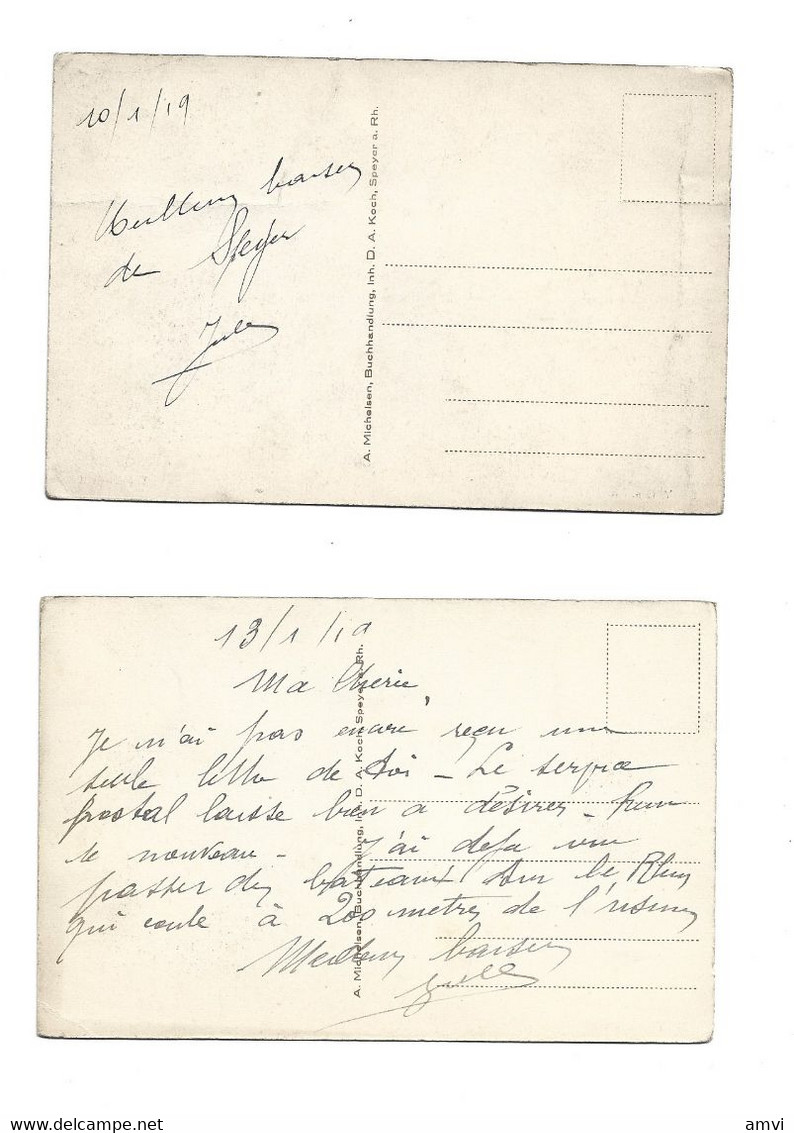 10/1/19
Meilleurs baisers
de Speyer
Jules
A. Michelsen, Buchhandlung, Inh. D. A. Koch, Speyer a. Rh.
13/1/19
Ma Cherie,
Je n'ai pas encore reçu une
seule lettre de toi - Le service
postal laisse bien a désirer - Rien
de nouveau - J'ai deja vu
passer des bateaux sur le Rhin
qui coule à 200 metres de l'usine
Meilleurs baisers
Jules
A. Michelsen, Buchhandlung, Inh. D. A. Koch, Speyer a. Rh.
Delcampe.net
amvi